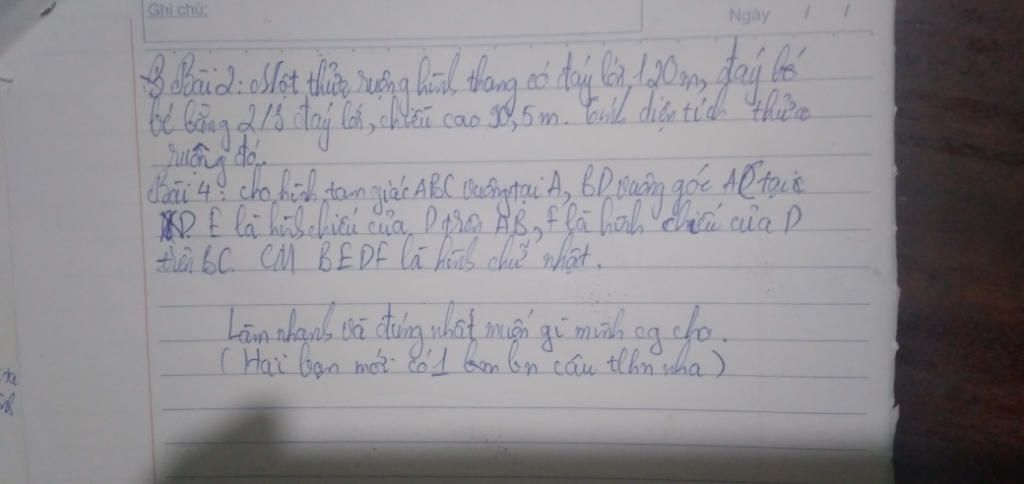 Ghi chú:
Ngày / /
Bài 2: Một thửa ruộng hình thang có đaý lớn 120m, đaý bé
bé bằng 2/3 đaý lớn, chiều cao 90,5m. tính diện tích thửa
ruộng đó.
Bài 4: cho hình tam giác ABC vuông tại A, BD vuông góc AC tại
D E là hình chiếu của D trên AB, F là hình chiếu của D
trên BC. CM BEDF là hình chữ nhật.
Làm nhanh và đúng nhất muốn gì mình cg cho.
(Hai bạn mới có 1 bn câu tlhn nha)